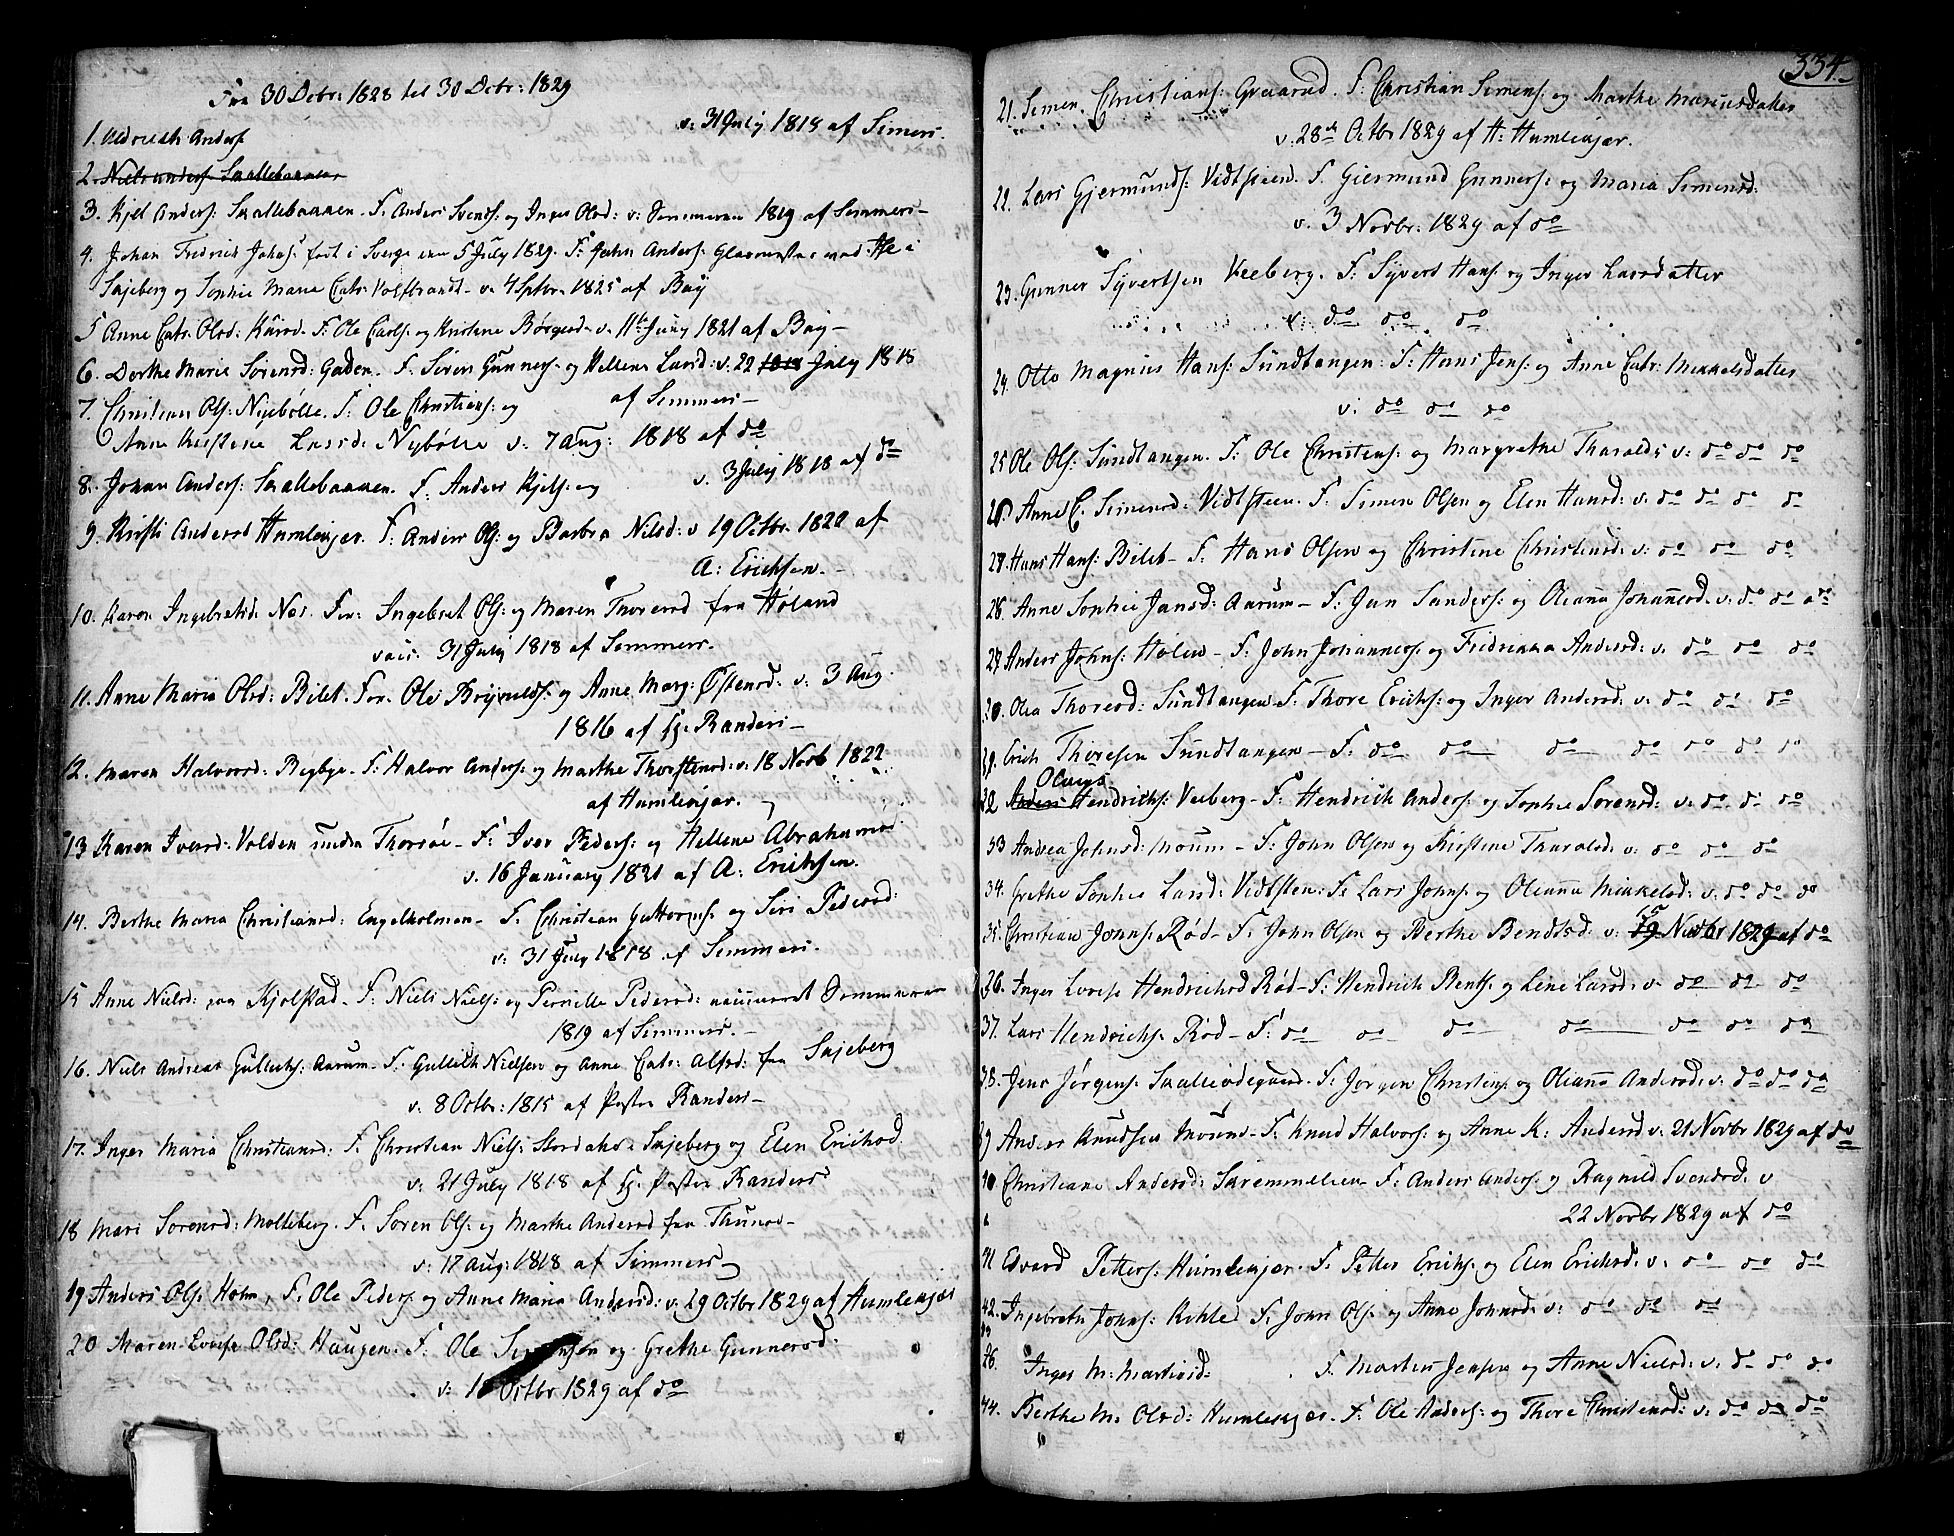 Fra 30 Decbr: 1828 til 30 Decbr: 1829
1. Anders: v: 31 July 1818 af Simers.
2. Niels Anders: Skallebakken
3. Kjel Anders: Skallebakken. F. Anders Svends: og Inger Olsd: v: Sommeren 1819 af Simmers–
4. Johan Fredrich Johns: født i Sverge den 5 July 1829. F: John Anders: Glarmester i
Skjeberg og Sophie Marie Catr: Volfbrandt v: 4 Sptbr. 1825 af Bay
5 Anne Catr. Olsd: F. Ole Carls: og Kristine Børgesd. v. 11te July 1821 af Bay–
6. Dorthe Marie Sørensd: Gaden. F. Søren Gunners: og Hellene Larsd: v. 22 1818 July 1818
af Simmers–
7. Christian Ols: Nyebølle. F: Ole Christens: og
Anne Kirstine Larsd: Nybølle v: 7 Aug: 1818 af do
8. Johan Anders: Skallebakken. F. Anders Kjels: og v. 3 July 1818 af do
9. Kirsti Andersd Humlekjær. F: Anders Ols: og Barbra Nilsd: v 19 Octbr. 1820 af
A: Erichsen.–
10. Karen Ingebretsd. Nes. For: Ingebret Ols: og Maren Thoresd fra Høland
vacc. 31 July 1818 af Sommers.
11. Anne Maria Olsd: Bilet. For. Ole Brynilds: og Anne Marg: Østensd: v: 3 Aug.
1816 af Hr. Randers–
12. Maren Halvorsd: Rigbye. F: Halvor Anders: og Marthe Thorstensd: v: 18 Novb 1822
af Humlekjær.
13 Karen Iversd: Volden under Thorsøe– F: Iver Peders: og Hellene Abrahamsd:
v. 16 January 1821 af A: Erichsen.
14. Berthe Maria Christiansd: Engelholmen– F. Christian Guttorms: og Siri Pedersd:
v: 31 July 1818 af Simmers.
15 Anne Nielsd: paa Kjølstad– F: Niels Niels: og Pernille Pedersd: Sommeren
1819 af Simmers.–
16. Niels Andreas Gulleks: Aarum– F. Gullich Nielsen og Anne Catr: Alfsd: fra Skjeberg
v: 8 Octbr: 1815 af Pastor Randers–
17. Inger Maria Christiansd: F. Christian Niels: Skjeberg og Elen Erichsd:
v: 21 July 1818 af Hr. Pastor Randers
18 Mari Sørensd: Molteberg. F. Søren Ols: og Marthe Andersd fra Thunøe–
v: 17 Aug: 1818 af Simmers–
19 Anders Ols: Holm, F. Ole Peders: og Anne Maria Andersd: v. 29 Octbr 1829 af Humlekjær
20 Maren Lovise Olsd: Haugen: F: Ole og Grethe Gunnersd:
v: Octbr 1829 af do
334.
21. Simen Christians: Graarud. F: Christian Simens: og Marthe Mariusdatter
v. 28de Octbr 1829 af H: Humlekjær.
22. Lars Gjermunds: Vidtsteen. F. Giermund Gunners: og Maria Simensd:
v. 3 Novbr: 1829 af do
23. Gunner Syvertsen Veeberg. F: Syvert Hans: og Inger Larsdatter
v: do do do
24. Otto Magnus Hans: Sundtangen: F: Hans Jens: og Anne Catr: Mikkelsdatter
v: do do do
25 Ole Ols: Sundtangen. F: Ole Christens: og Margrethe Tharalds: v: do do do
26. Anne C. Simensd: Vidtsteen. F. Simen Olsen og Elen Hansd: v: do do do
27. Hans Hans: Bilet– F. Hans Olsen og Christine Christensd: v: do do do
28. Anne Sophie Jansd: Aarum– F: Jan Sanders: og Oleana Johannesd: v: do do do
29 Anders Johns: Holen– F: John Johannes: og Fredrikka Andersd: v: do do do
30. Olea Thoresd: Sundtangen– F: Thore Erichs: og Inger Andersd: v: do do do
31. Erich Thoresen Sundtangen– F: do do do do do do do
Olaves
32 Anders Hendrichs: Veeberg– F: Hendrich Anders: og Sophie Sørensd: v. do do do
33 Andrea Johnsd: Moum– F: John Olsen og Kirstine Tharalsd: v: do do do
34. Grethe Sophie Larsd: Vidtsten: F: Lars Johns: og Oleana Mikkelsd: v: do do do
35. Christian Johns: Rød– F: John Olsen og Berthe Bendtsd: v: 19 Novbr 1829 af do
36. Inger Lovise Hendrichsd Rød– F: Hendrich Bents: og Lene Larsd: v. do do do
37. Lars Hendrichs: Rød– F: do do do do do do do
38. Jens Jørgens: Skalleødegaard. F: Jørgen Christens: og Oleana Andersd: v: do do do
39 Anders Knudsen Moum– F. Knud Halvors: og Anne K: Andersd v: 21 Novbr 1829 af do
40 Christiane Andersd: Skremmelsen– F: Anders Anders: og Ragnild Svendsd: v
22 Novbr 1829 af do
41 Edvard Petters: Humlekjær. F. Petter Erichs: og Elen Erichsd: v. do do do
42. Ingebreth Johns: Kihle. F. John Ols: og Anne Johnsd: v: do do do
Inger M: Martinsd: F. Marten Jensen og Anne Nielsd: v. do do do
44. Berthe M. Olsd: Humlekjær. F. Ole Anders: og Thore Christensd: v: do do do